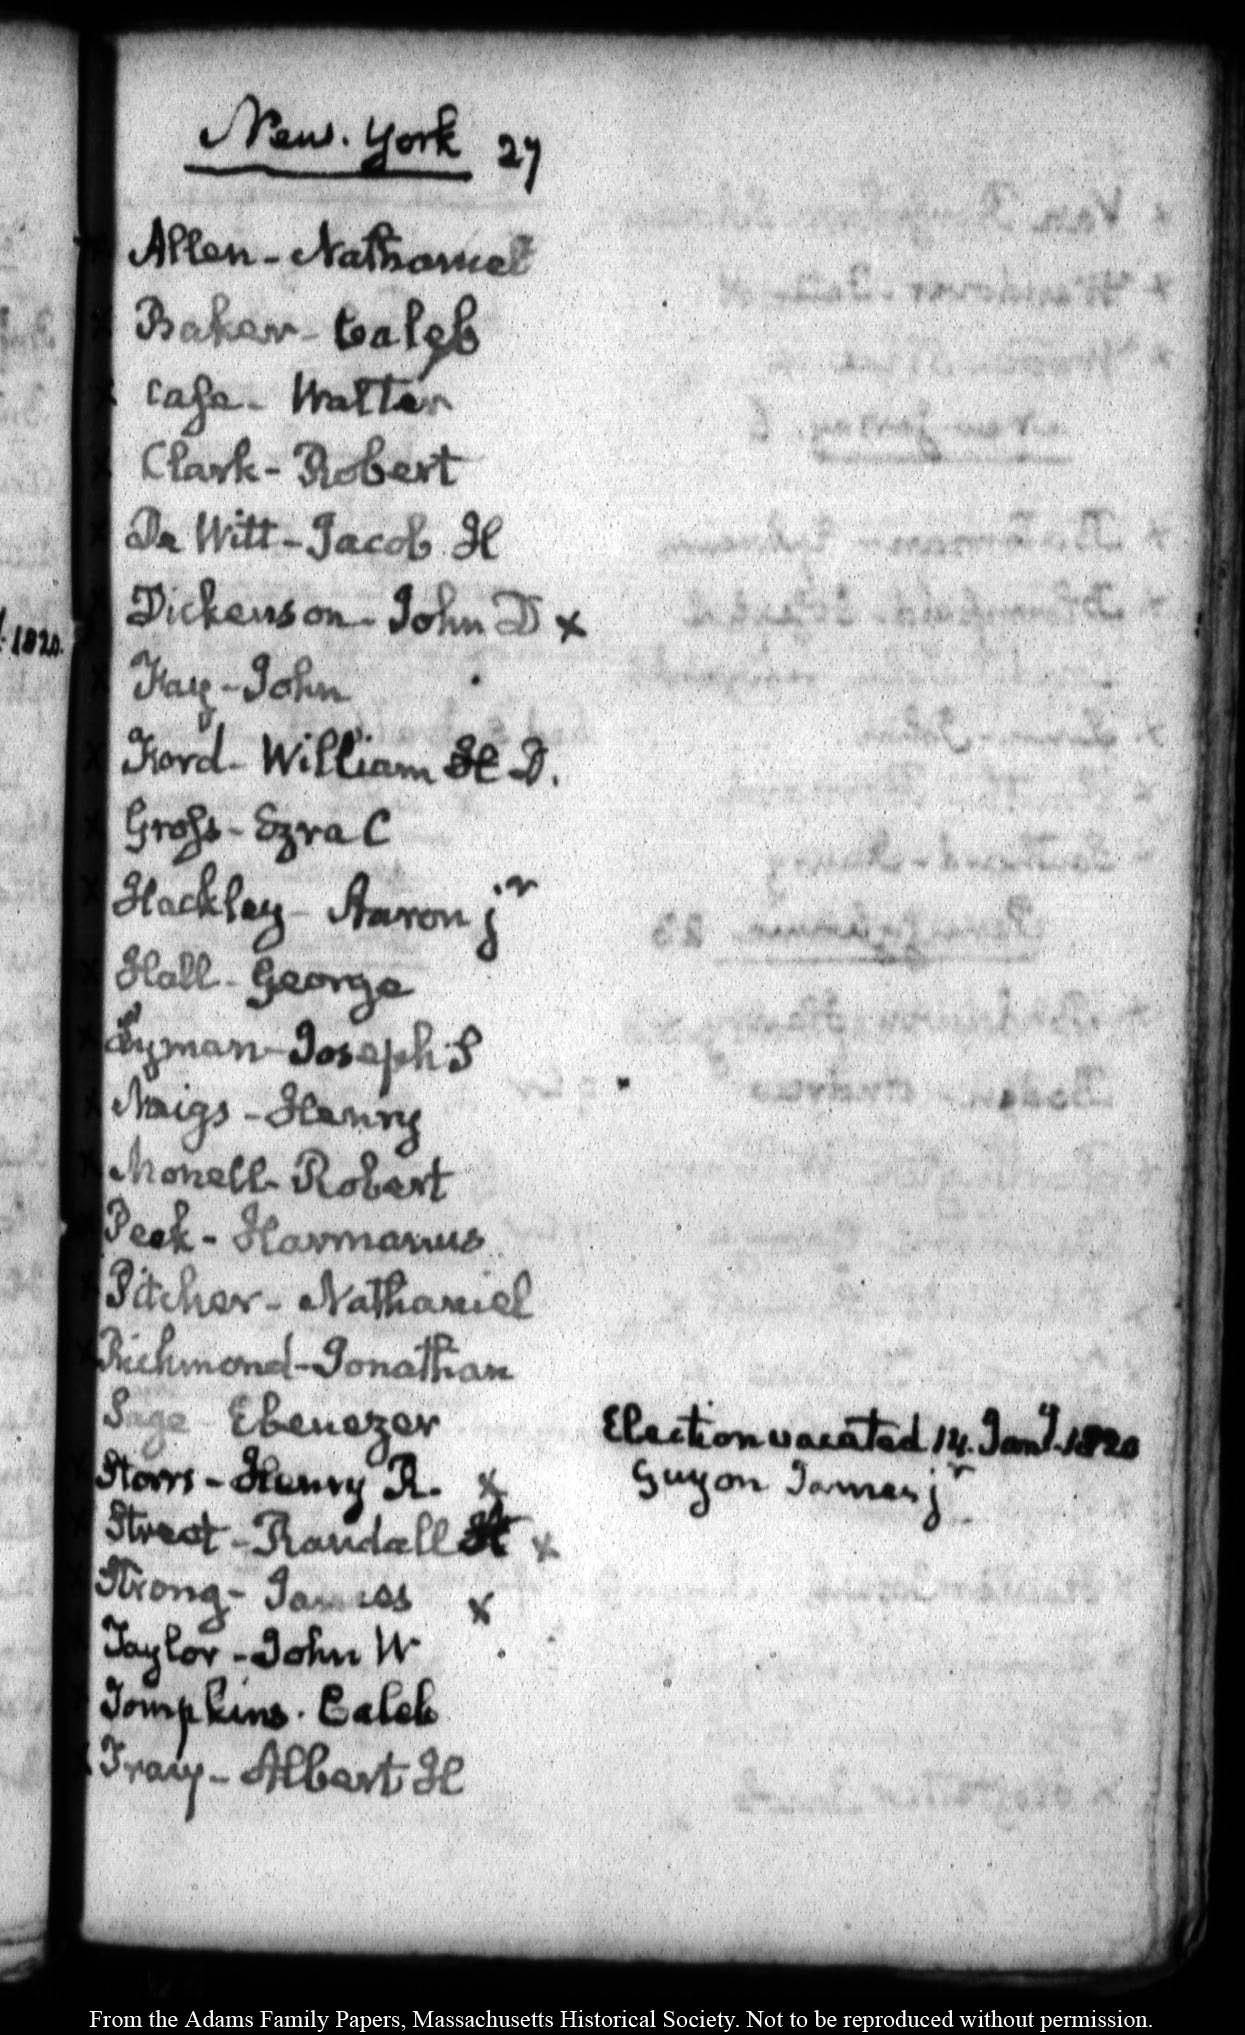 New-York 27
Allen - Nathaniel
Baker - Caleb
Case - Walter
Clark - Robert
De Witt - Jacob H
Dickenson - John D x
Fay - John
Ford - William H D.
Gross - Ezra C
Hackley - Aaron jr
Hall - George
Lyman - Joseph S
Meigs - Henry
Monell - Robert
Peek - Harmanus
Pitcher - Nathaniel
Richmond - Jonathan
Sage Ebenezer Election vacated 14. Jany. 1820
Guyon James jr
Storrs - Henry R. x
Street - Randall x
Strong - James x
Taylor - John W
Tompkins. Caleb
Tracy - Albert H
1820.
From the Adams Family Papers, Massachusetts Historical Society. Not to be reproduced without permission.